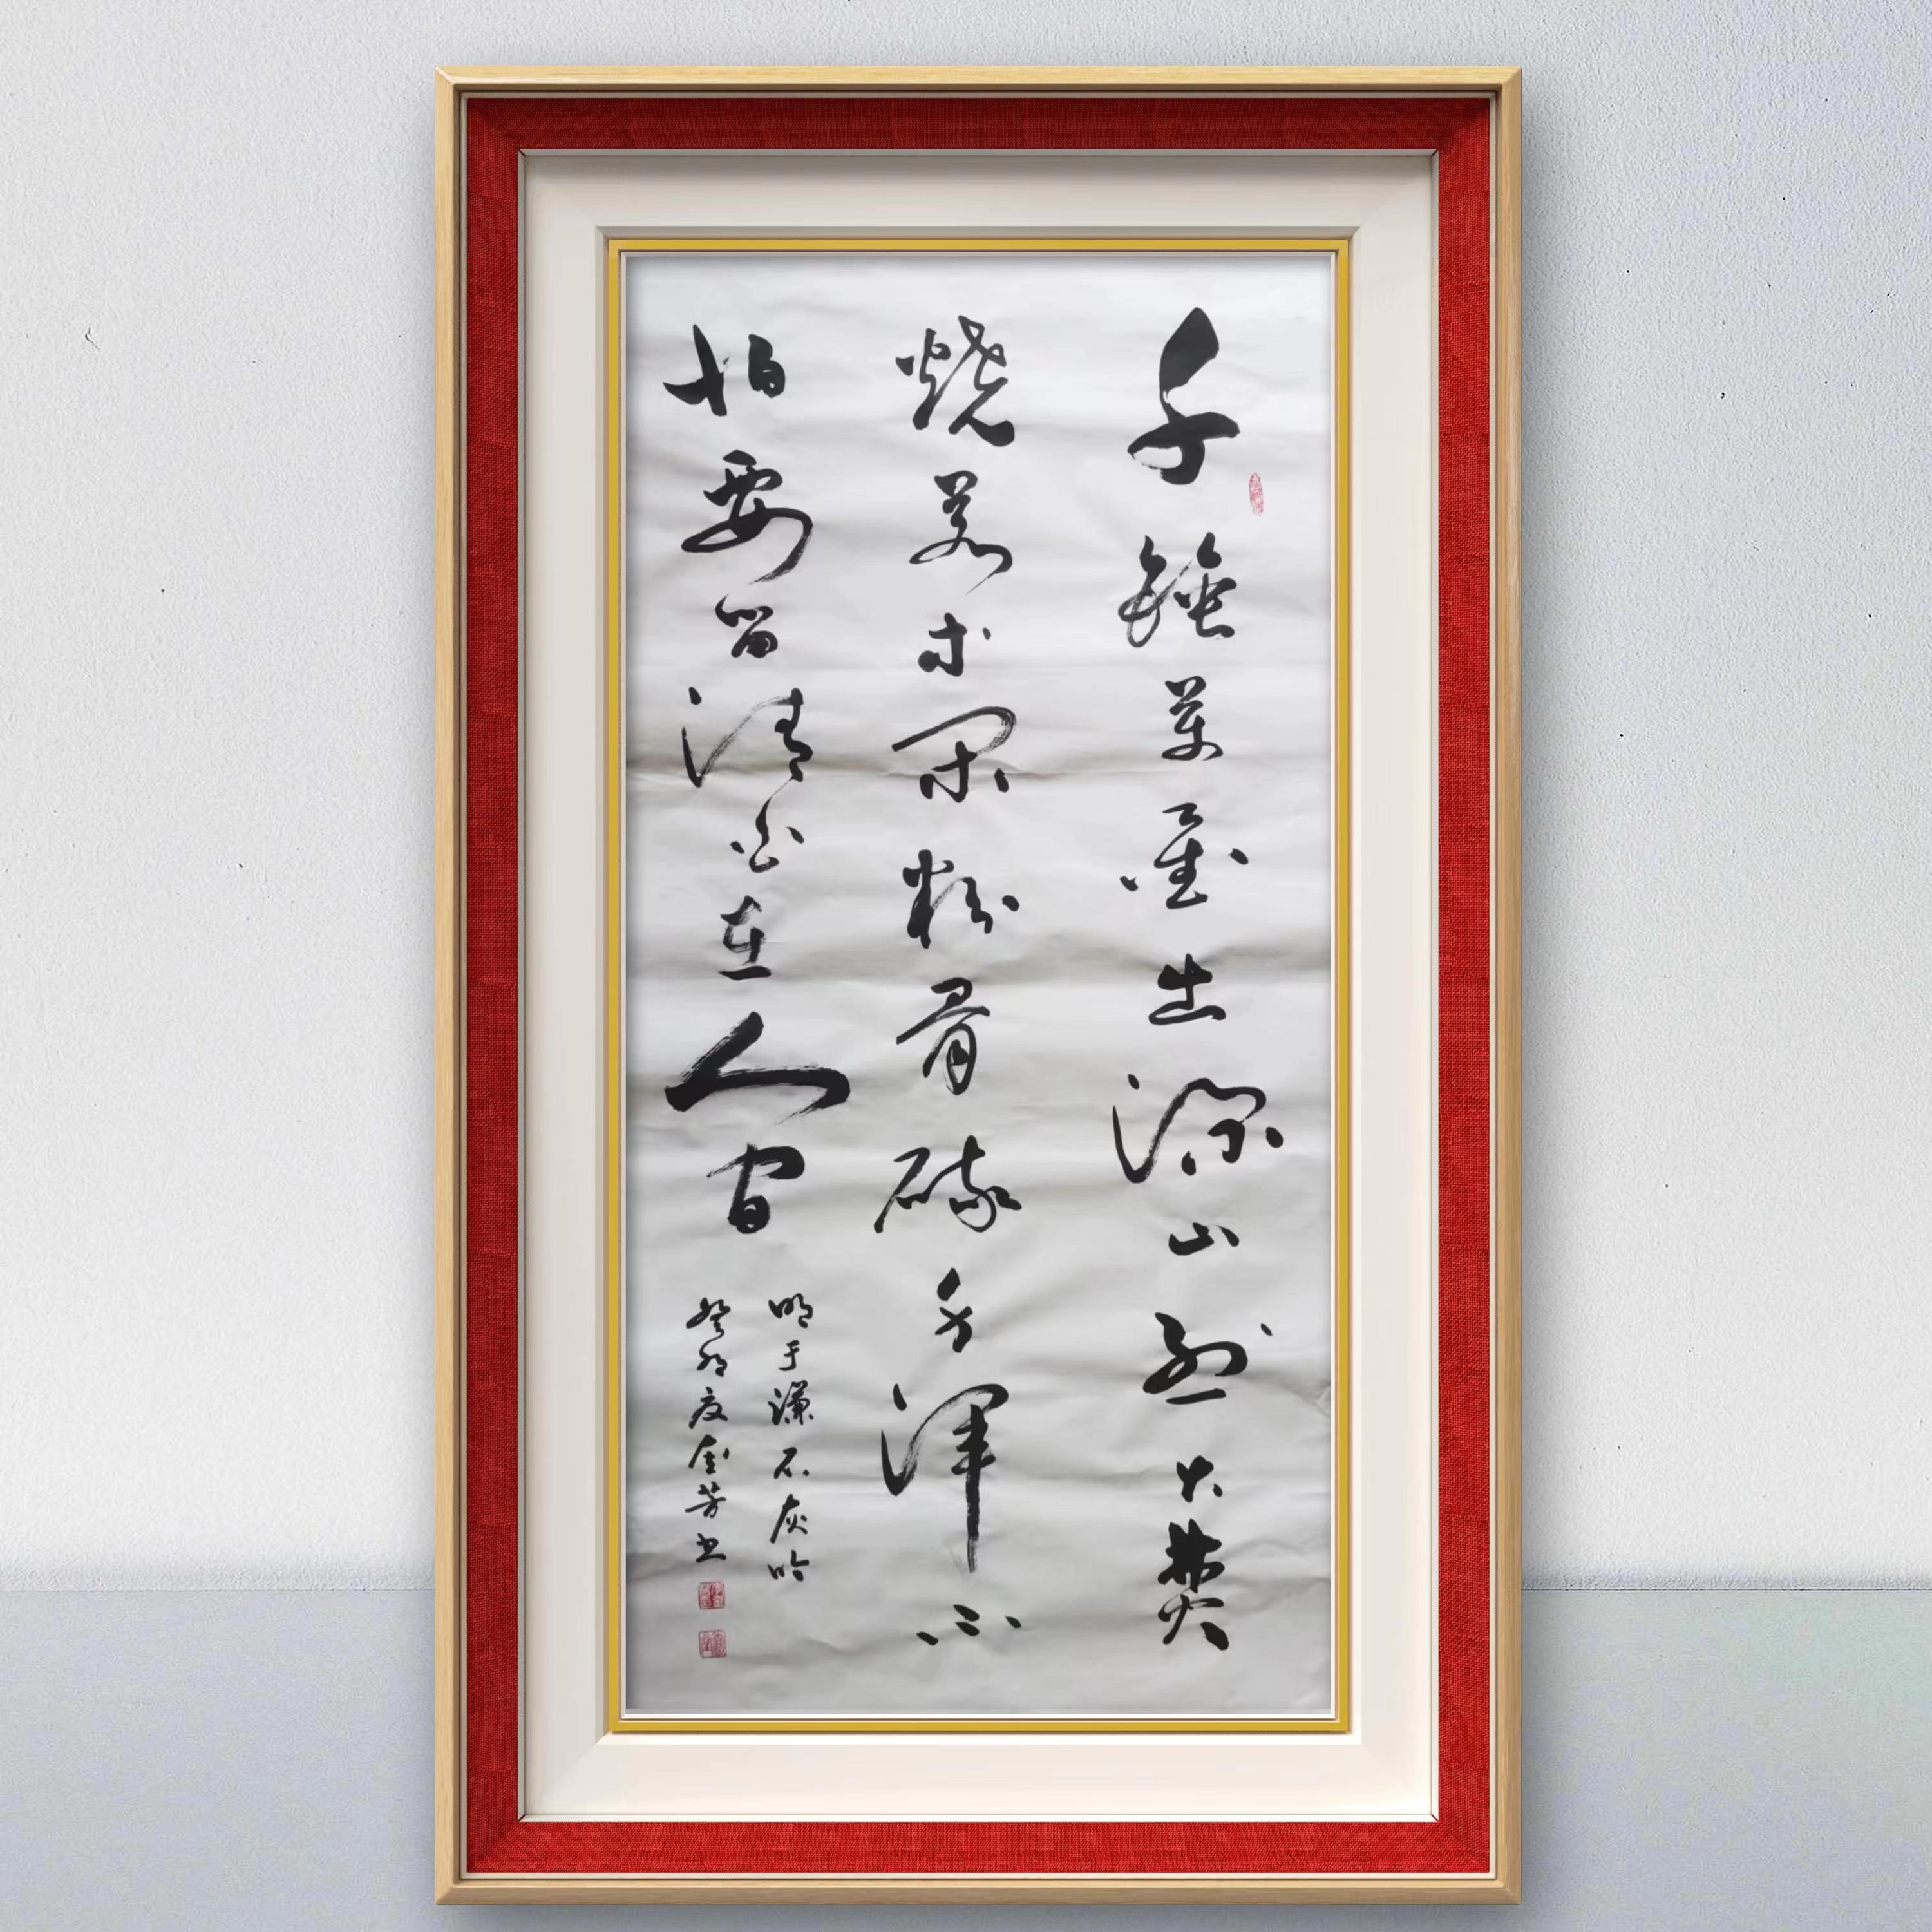 千錘萬鑿出深山烈火焚
燒若等閑粉骨碎身渾不
怕要留清白在人間
明于謙石灰吟
癸卯夏芳书